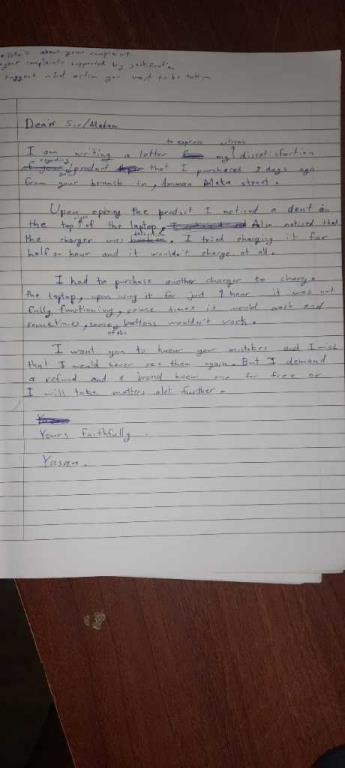 details about your complaint
your complaints supported by justification
suggest what action you want to be taken
Dear Sir/Madam
to express extreme
I am writing a letter my dissatisfaction
regarding your product that I purchased 3 days ago
from your branch in, Amman Mecca street.
Upon opining the product I noticed a dent in
the top of the laptop, Also noticed that
the charger was. I tried charging it for
half an hour and it wouldn't charge at all.
I had to purchase another charger to charge
the laptop, upon using it for just 1 hour it was not
fully functioning, some times it would and
sometimes, some buttons wouldn't work.
of the
I want you to know your mistakes and I wish
that I would never see them again. But I demand
a refund and a brand new one for free or
I will take matters alot further.
Yours faithfully
Yasan.